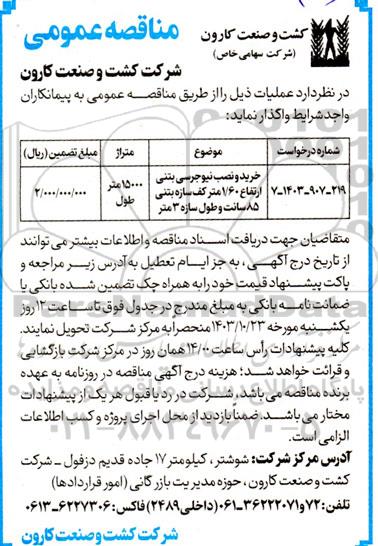 مناقصه عمومی
کشت و صنعت کارون
(شرکت سهامی خاص)
شرکت کشت و صنعت کارون
در نظر دارد عملیات ذیل را از طریق مناقصه عمومی به پیمانکاران
واجد شرایط واگذار نماید:
شماره درخواست موضوع متراژ مبلغ تضمین (ریال)
۷-۱۴۰۳-۹۰۷-۲۱۹ خرید و نصب نیوجرسی بتنی ارتفاع ۱/۶۰ متر کف سازه بتنی ۸۵ سانت و طول سازه ۳ متر ۱۵۰۰۰ متر طول ۲/۰۰۰/۰۰۰/۰۰۰
متقاضیان جهت دریافت اسناد مناقصه و اطلاعات بیشتر می توانند
از تاریخ درج آگهی، به جز ایام تعطیل به آدرس زیر مراجعه و
پاکت پیشنهاد قیمت خود را به همراه چک تضمین شده بانکی یا
ضمانت نامه بانکی به مبلغ مندرج در جدول فوق تا ساعت ۱۲ روز
یکشنبه مورخه ۱۴۰۳/۱۰/۲۳ منحصرا به مرکز شرکت تحویل نمایند.
کلیه پیشنهادات رأس ساعت ۱۴/۰۰ همان روز در مرکز شرکت بازگشایی
و قرائت خواهد شد؛ هزینه درج آگهی مناقصه در روزنامه به عهده
برنده مناقصه می باشد. شرکت در رد یا قبول هر یک از پیشنهادات
مختار می باشد. ضمناً بازدید از محل اجرای پروژه و کسب اطلاعات
الزامی است.
آدرس مرکز شرکت: شوشتر، کیلومتر ۱۷ جاده قدیم دزفول ـ شرکت
کشت و صنعت کارون، حوزه مدیریت بازرگانی (امور قراردادها)
تلفن: ۷۲ و ۳۶۲۲۲۰۷۱-۰۶۱ (داخلی ۲۴۸۹) فاکس: ۶۲۲۷۳۰۶-۰۶۱۳
شرکت کشت و صنعت کارون